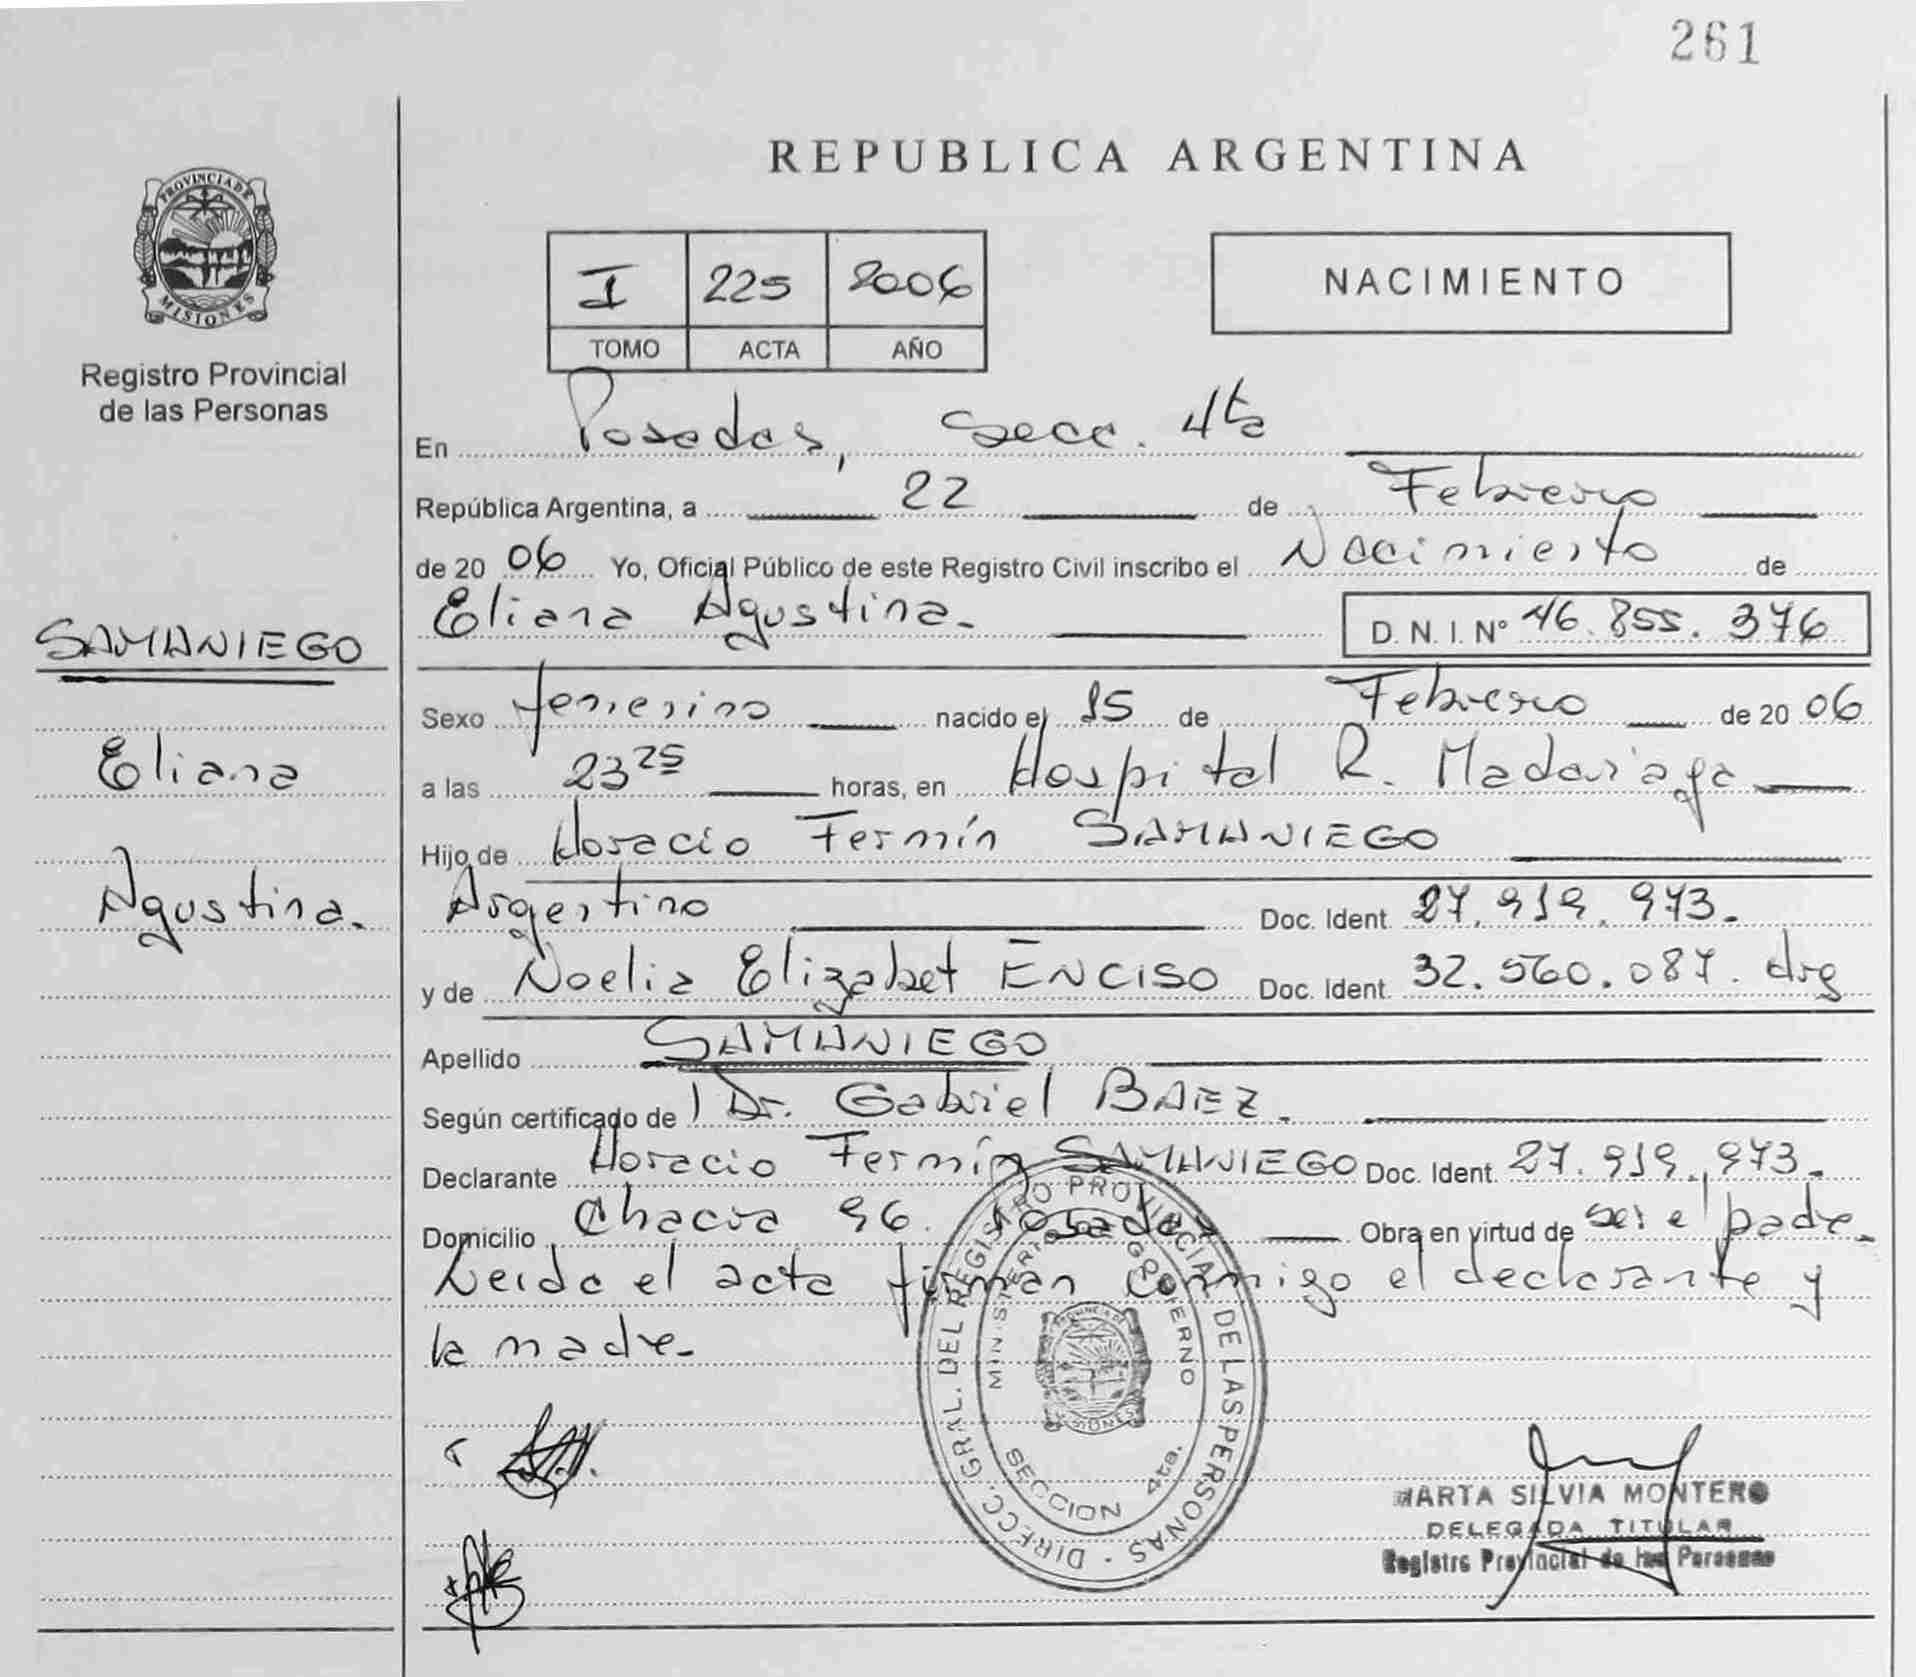 261
REPUBLICA ARGENTINA
PROVINCIA DE
MISIONES
Registro Provincial
de las Personas
I 225 2006
TOMO ACTA AÑO
NACIMIENTO
En Posadas, Secc. 4ta
República Argentina, a 22 de Febrero
de 20 06 Yo, Oficial Público de este Registro Civil inscribo el Nacimiento de
Eliana Agustina. D. N. I. N° 46.855.376
SAMANIEGO
Eliana
Agustina.
Sexo femenino nacido el 15 de Febrero de 20 06
a las 23 25 horas, en Hospital R. Madariaga
Hijo de Horacio Fermín SAMANIEGO
Argentino Doc. Ident. 27.919.973.
y de Noelia Elizabet ENCISO Doc. Ident. 32.560.087. Arg
Apellido SAMANIEGO
Según certificado de Dr. Gabriel BAEZ.
Declarante Horacio Fermín SAMANIEGO Doc. Ident. 27.919.973.
Domicilio Chacra 96. Posadas Obra en virtud de ser el padre.
Leida el acta firman conmigo el declarante y
la madre.
DIRECC. GRAL. DEL REGISTRO PROVINCIAL DE LAS PERSONAS
MINISTERIO GOBIERNO
SECCION 4ta.
MARTA SILVIA MONTERO
DELEGADA TITULAR
Registro Provincial de las Personas